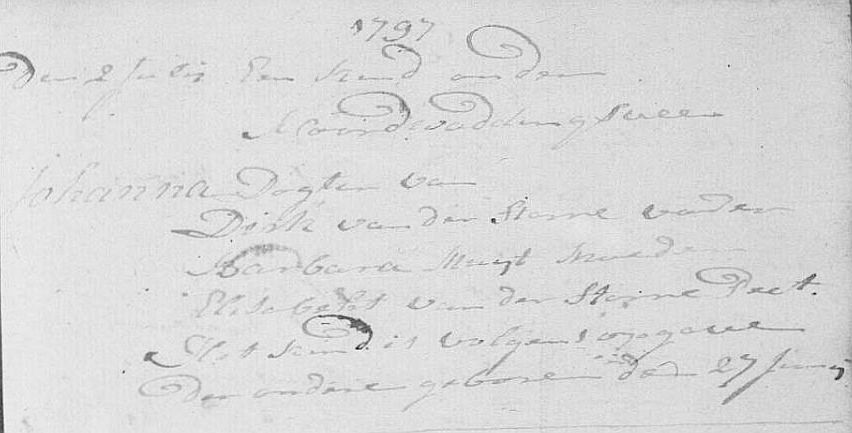 1797
Den 2 Julij Een kind onder
Noordwaddingsveen
Johanna Dogter van
Dirk van der Storre vader
Barbara Muyt Moeder
Elisabeht van der Storre Peet.
Het kind is volgens opgave
der ouders geboren den 27 Junij